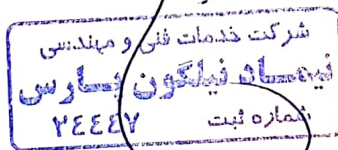 شرکت خدمات فنی و مهندسی
نیمساد نیلگون پارس
شماره ثبت ۲٤٤٤۷